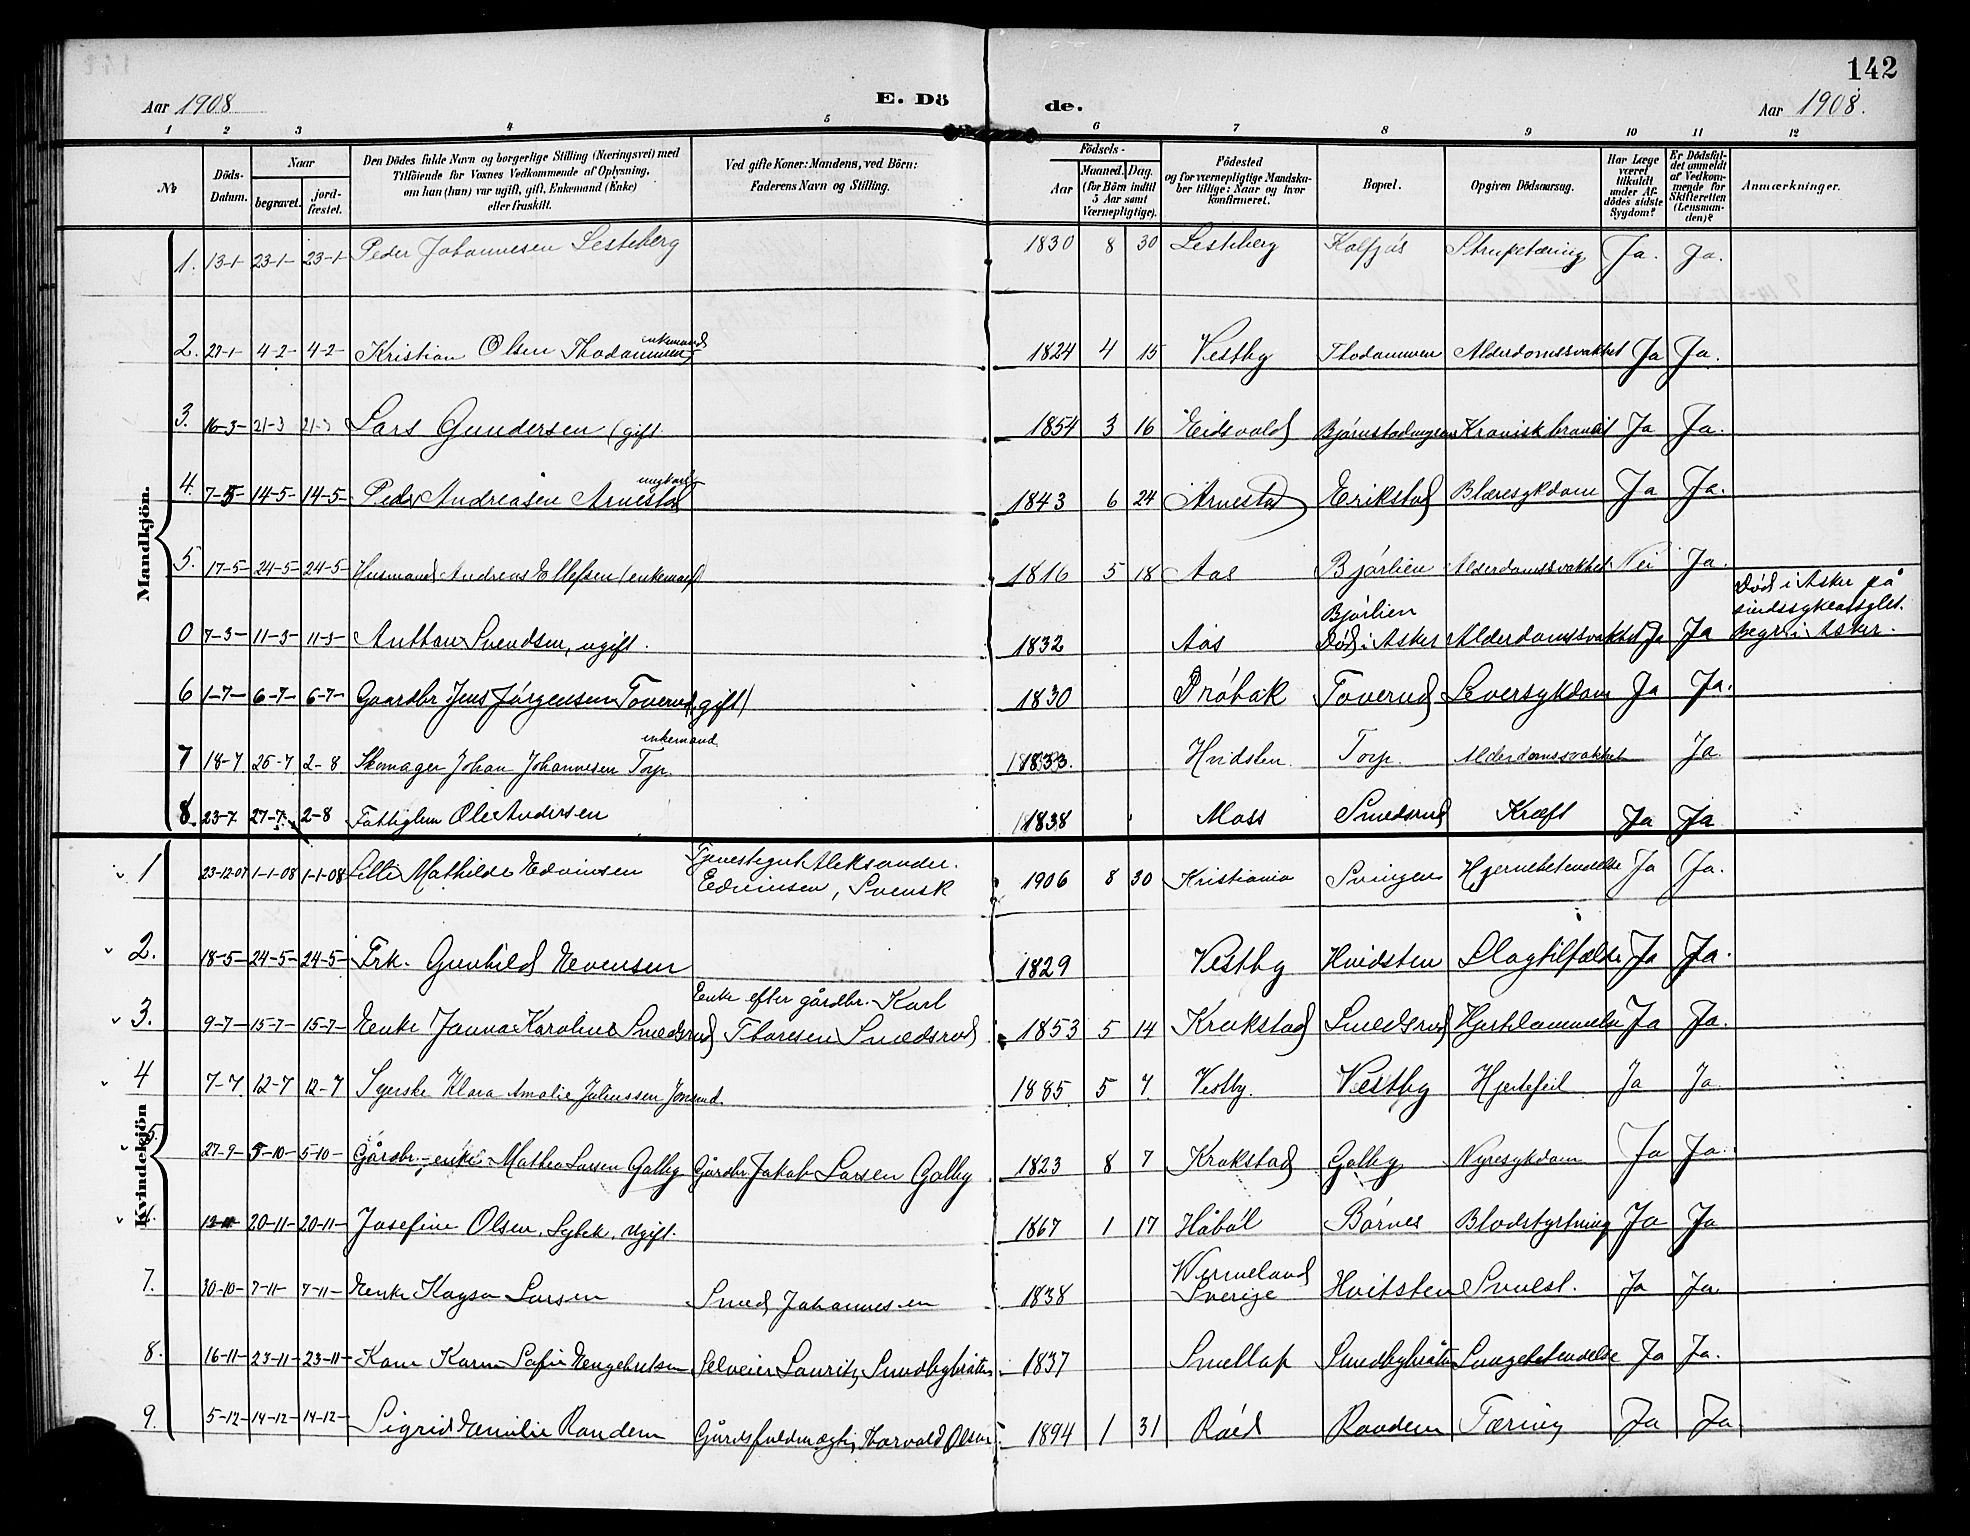 142
Aar 1908 E. Dö de. Aar 1908.
1 2 3 4 5 6 7 8 9 10 11 12
No Döds-Datum. Naar begravet. jord-fæstet. Den Dödes fulde Navn og borgerlige Stilling (Næringsvei) med Tilföiende for Voxnes Vedkommende af Oplysning, om han (hun) var ugift, gift, Enkemand (Enke) eller fraskilt. Ved gifte Koner: Mandens, ved Börn: Faderens Navn og Stilling. Födsels- Aar Maaned. Dag. (for Börn indtil 5 Aar samt Værnepligtige). Födested og for værnepligtige Mandskaber tillige: Naar og hvor konfirmeret. Bopæl. Opgiven Dödsaarsag. Har Læge været tilkaldt under Afdödes sidste Sygdom? Er Dödsfaldet anmeldt af Vedkommende for Skifteretten (Lensmanden)? Anmærkninger.
Mandkjön.
1. 13-1 23-1- 23-1 Peder Johannesen Lesteberg 1830 8 30 Lesteberg Kolfjøs Strupetæring Ja. Ja.
2. 27-1 4-2- 4-2 Kristian Olsen Thodammen enkemand 1824 4 15 Vestby Thodammen Alderdomssvakhet Ja Ja.
3. 16-3- 21-3 21-3 Lars Gundersen (gift 1854 3 16 Eidsvold Ja Ja.
4. 7-5- 14-5- 14-5- Peder Andreasen Arnestad ungkarl 1843 6 24 Arnestad Erikstad Blæresykdom Ja Ja.
5. 17-5- 24-5- 24-5- Husmand Andreas Ellefsen (enkemand) 1816 5 18 Aas Bjørlien Alderdomssvakhet Nei Ja.
0 7-3- 11-3- 11-3 Anthon Svendsen, ugift. 1832 Aas Bjørlien Død i Asker Alderdomssvakhet Ja Ja Død i Asker på sindssykeasylet. Begr. i Asker.
6 1-7- 6-7- 6-7- Gaardbr Jens Jørgensen Toverud (gift) 1830 Drøbak Toverud Leversykdom Ja Ja.
7 18-7 26-7 2-8 Skomager Johan Johannesen Torp. enkemand 1833. Hvidsten Torp. Alderdomssvakhet Ja.
8. 23-7 27-7 2-8 Fattiglem Ole Andersen 1838 Moss Smedsrud Kræft Ja Ja
Kvindekjön
1 23-12-07 1-1-08 1-1-08 Mathilde Edvinsen Tjenestegut Aleksander Edvinsen, Svensk 1906 8 30 Kristiania Svingen Hjernebetendelse Ja Ja.
2. 18-5- 24-5- 24-5- Frk. Gunhild Evensen 1829 Vestby Hvidsten Slagtilfælde Ja Ja.
3. 9-7- 15-7- 15-7- Enke Janna Karoline Smedsrud Enke efter gårdbr. Karl Thoresen Smedsrud 1853 5 14 Krokstad Smedsrud Hjertelammelse Ja Ja.
4 7-7 12-7 12-7 Syerske Klara Amalie Juliussen 1885 5 7. Vestby. Vestby Hjertefeil Ja Ja
5. 27-9- 5-10- 5-10- Gårdbr.-enke Mathea Larsen Galby Gårdbr Jakob Larsen Galby 1823 8 7 Krokstad Galby Nyresykdom Ja Ja.
20-11- 20-11- Josefine Olsen, ugift. 1867 1 17 Håbøl Børnes Blodstyrtning Ja Ja
7. 30-10- 7-11- 7-11- Enke Kaysa Larsen Smed Johannesen 1838 Vermeland Sverige Hvitsten Svulst. Ja Ja.
8. 16-11- 23-11- 23-11- Kone Karen Sofie Engebretsen Selveier Lauritz 1837 Lungebetendelse Ja Ja.
9. 5-12- 14-12- 14-12- Sigrid Emilie Randem Gårdsfuldmægtig Olsen 1894 1 31 Randem Tæring Ja Ja.